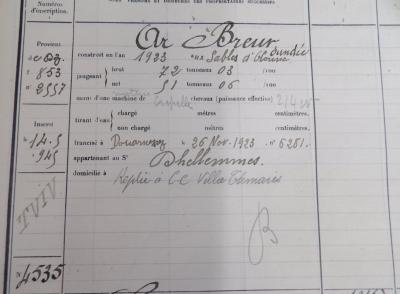 Numéros
d'inscription.
Provient
853
2557
Inscrit
14.5
945
4535
Ar Breur
dundée
construit en l'an 1923 aux Sables d'Olonne
jaugeant
brut 72 tonneaux 03 /100
net 51 tonneaux 06 /100
mené d'une machine de chevaux (puissance effective)
tirant d'eau
chargé mètres centimètres.
non chargé mètres centimètres.
francisé à Douarnenez le 26 Nov. 1923 n° 6281.
appartenant au Sr Dhellemmes.
domicilié à
Replié à CC Villa Tamaris